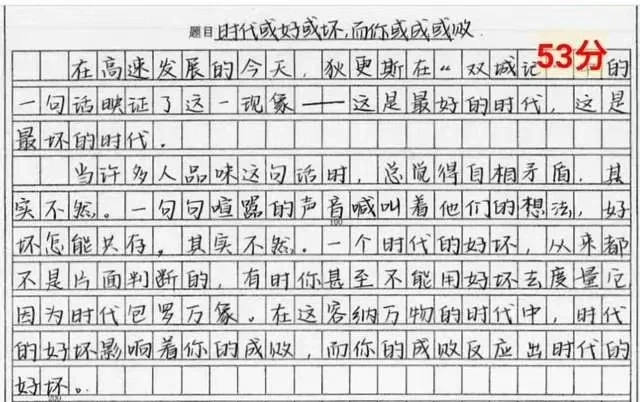 题目 时代或好或坏,而你或成或败.
53分
在高速发展的今天,狄更斯在“双城记 的
一句话映证了这一现象——这是最好的时代,这是
最坏的时代.
当许多人品味这句话时,总觉得自相矛盾.其
实不然。一句句喧嚣的声音喊叫着他们的想法,好
坏怎能共存,其实不然.一个时代的好坏,从来都
不是片面判断的,有时你甚至不能用好坏去度量它
100
因为时代包罗万象。在这容纳万物的时代中,时代
的好坏影响着你的成败,而你的成败反应出时代的
好坏。
200